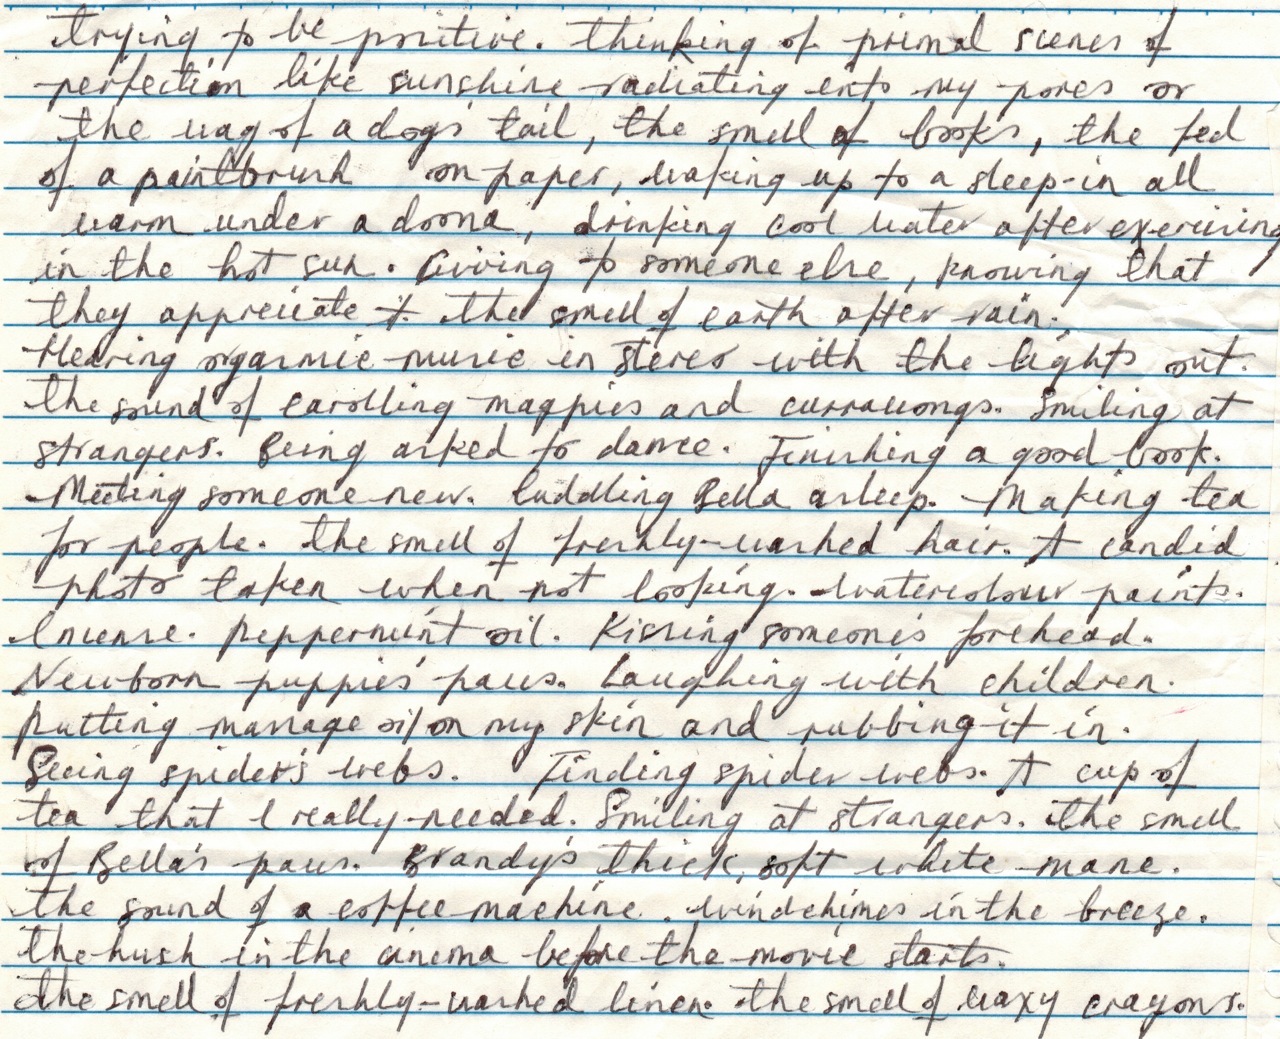 trying to be positive. Thinking of primal scenes of
perfection like sunshine radiating into my pores or
the wag of a dog's tail, the smell of books, the feel
of a paintbrush on paper, waking up to a sleep-in all
warm under a doona, drinking cool water after exercising
in the hot sun. Giving to someone else, knowing that
they appreciate it. The smell of earth after rain.
Hearing orgasmic music in stereo with the lights out.
The sound of carolling magpies and currawongs. Smiling at
strangers. Being asked to dance. Finishing a good book.
Meeting someone new. Cuddling Bella asleep. Making tea
for people. The smell of freshly-washed hair. A candid
photo taken when not looking. Watercolour paints.
Incense. Peppermint oil. Kissing someone's forehead.
Newborn puppies' paws. Laughing with children.
Putting massage oil on my skin and rubbing it in.
Seeing spider's webs. Finding spider webs. A cup of
tea that I really needed. Smiling at strangers. The smell
of Bella's paws. Brandy's thick, soft white mane.
The sound of a coffee machine. Windchimes in the breeze.
The hush in the cinema before the movie starts.
The smell of freshly-washed linen. The smell of waxy crayons.